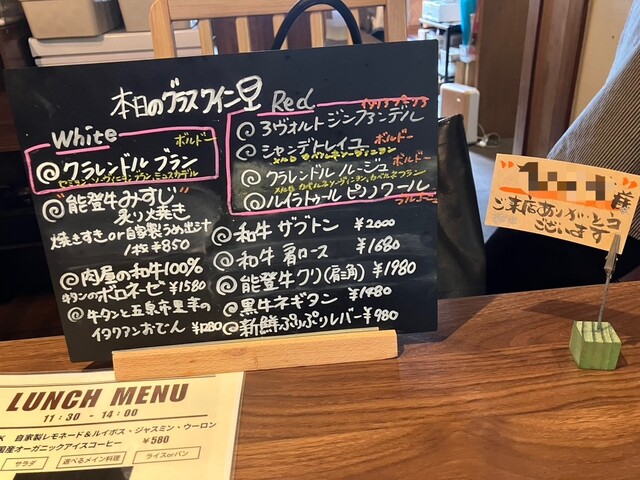 本日のグラスワイン
White
ボルドー
クラレンドル ブラン
セミヨン・ソーヴィニヨンブラン・ミュスカデル
"能登牛みすじ"
炙り焼き
焼きすき or 自家製うめ出汁
1枚 ¥850
肉屋の和牛100%
牛タンのボロネーゼ ¥1580
牛タンと五泉市里芋の
イタリアンおでん ¥1280
Red
3ヴォルト ジンファンデル
シャンデトレイユ ボルドー
メルロ カベルネソーヴィニヨン
クラレンドル ルージュ ボルドー
メルロ カベルネソーヴィニヨン、カベルネフラン
ルイラトゥール ピノノワール
和牛 ザブトン ¥2000
和牛 肩ロース ¥1680
能登牛クリ(肩三角) ¥1980
黒牛ネギタン ¥1480
新鮮ぷりぷりレバー ¥980
様
ご来店ありがとう
ございます
LUNCH MENU
11:30 - 14:00
自家製レモネード&ルイボス・ジャスミン・ウーロン
国産オーガニックアイスコーヒー ¥580
サラダ
選べるメイン料理
ライスorパン